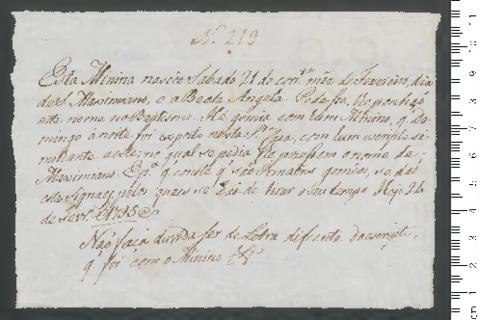 N. 219
Esta Minina nasceo Sabado 21 do corr.te mês de Fevereiro, dia
de S. Maximiano, e a Beata Angela. Pede-se, lhe ponhão
este nome no Baptismo. He gemia com hum Minino, q. Do-
mingo á noite foi exposto nesta S.ta Caza, com hum escripto si-
milhante a este, no qual se pedia lhe pozessem o nome de
Maximiano. E p.a q. conste q. são Irmaons gemios, se dão
estes signaes, pelos quaes se hão de tirar a seu tempo. Hoje 24
de Fevr.o 1795
Não faça duvida ser de Letra difrente do escripto,
q. foi com o Minino